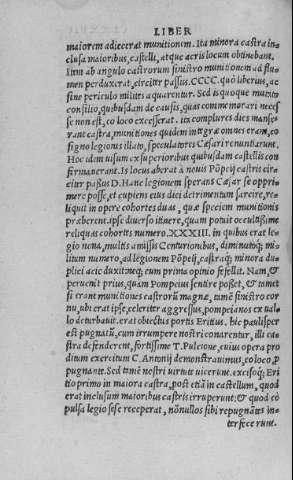 LIBER
maiorem adiecerat munitionem. Ita minora castra in-
clusa maioribus, castelli, atque arcis locum obtinebant.
Itẽ ab angulo castrorum sinistro munitionem ad flu-
men perduxerat, circiter passus. CCCC. quò liberius, ac
sine periculo milites aquarentur. Sed is quoque mutato
consilio, quibusdam de causis, quas commemorari neces
se non est, eo loco excesserat. ita complures dies manse-
rant castra, munitiones quidem integræ omnes erant, eo
signo legionus illato, speculatores Cæsari renuntiarunt.
Hoc idem uisum ex superioribus quibusdam castellis con
firmauerant. Is locus aberat à nouis Põpeij castris cir-
citer passus D. Hanc legionem sperans Cæsar se oppri-
mere posse, et cupiens eius diei detrimentum sarcire, re-
liquit in opere cohortes duas, quæ speciem munitionis
præberent. ipse diuerso itinere, quam potuit occultissime
reliquas cohortis numero. XXXIII. in quibus erat le-
gio nona, multis amissis Centurionibus, diminutoq; mi-
litum numero, ad legionem Põpeij, castraq; minora du-
plici acie duxit. neq; eum prima opinio fefellit. Nam, &
peruenit prius, quam Pompeius sentire posset, & tamet
si erant munitiones castrorũ magnæ, tamẽ sinistro cor
nu, ubi erat ipse, celeriter aggressus, pompeianos ex ual
lo deturbauit. erat obiectus portis Eritius. hic paulisper
est pugnatũ, cum irrumpere nostri conarentur, illi ca-
stra defenderent, fortissime T. Pulcione, cuius opera pro
ditum exercitum C. Antonij demonstrauimus, eo loco, p
pugnante. Sed tamẽ nostri uirtute uicerunt. excisoq; Eri
tio primo in maiora castra, post etiã in castellum, quod
erat inclusum maioribus castris irruperunt: & quod eò
pulsa legio sese receperat, nõnullos sibi repugnãtes in-
terfecerunt.